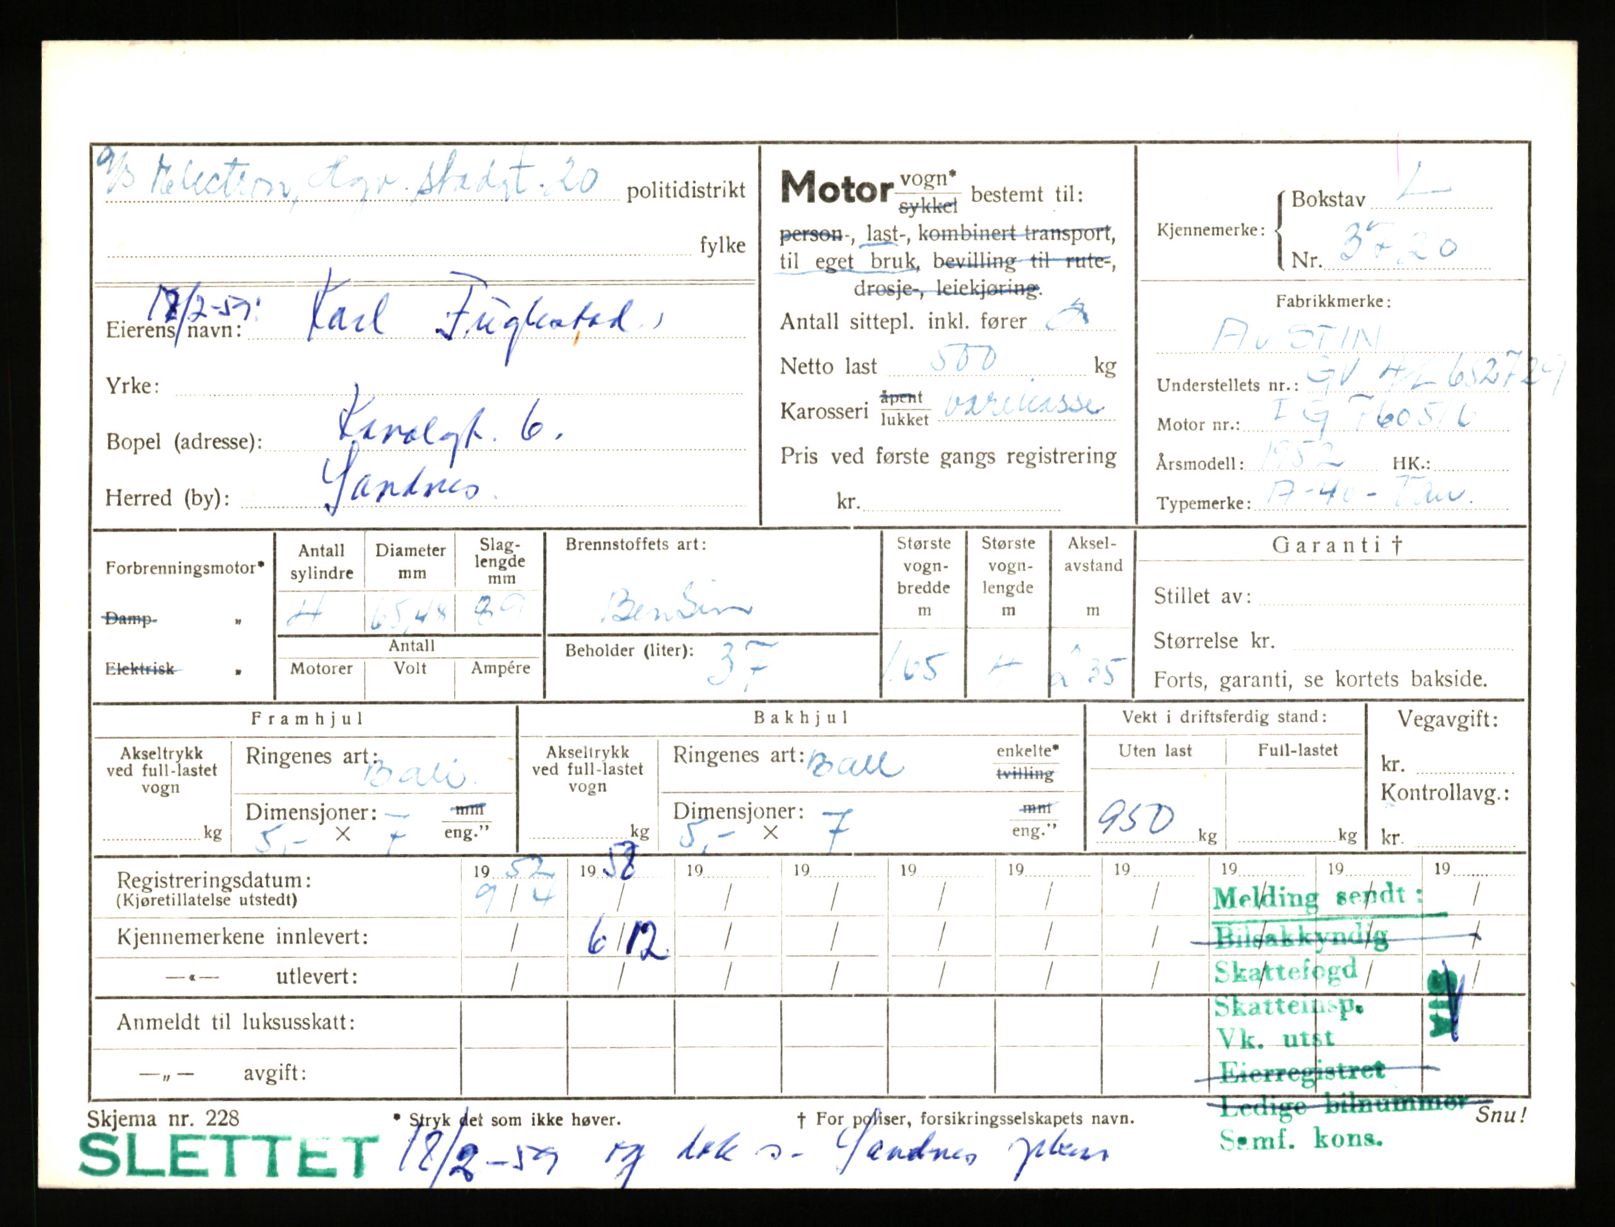 A/S Electron, stadgt. 20 politidistrikt
fylke
12/2-59:
Eierens navn: Karl Fuglestad,
Yrke:
Bopel (adresse): Karolgt. 6.
Herred (by): Sandnes.
Motor vogn* sykkel bestemt til:
person-, last-, kombinert transport,
til eget bruk, bevilling til rute-,
drosje-, leiekjøring.
Antall sittepl. inkl. fører
Netto last 500 kg
Karosseri åpent lukket varekasse
Pris ved første gangs registrering
kr.
Kjennemerke: Bokstav L
Nr. 3720
Fabrikkmerke:
AUSTIN
Understellets nr.: GV 4/L 652729
Motor nr.: I G 760516
Årsmodell: 1952 HK.:
Typemerke: A-40-Van.
Forbrenningsmotor*
Damp- „
Elektrisk „
Antall sylindre 4
Diameter mm 65,48
Slaglengde mm 89
Antall
Motorer Volt Ampére
Brennstoffets art:
Bensin
Beholder (liter): 37
Største vogn-bredde m 1.65
Største vogn-lengde m 4
Aksel-avstand m 2.35
Garanti †
Stillet av:
Størrelse kr.
Forts, garanti, se kortets bakside.
Framhjul
Akseltrykk ved full-lastet vogn
kg
Ringenes art: Ball.
Dimensjoner: 5,- × 7 mm eng.”
Bakhjul
Akseltrykk ved full-lastet vogn
kg
Ringenes art: Ball enkelte* tvilling
Dimensjoner: 5,- × 7 mm eng.”
Vekt i driftsferdig stand:
Uten last Full-lastet
950 kg kg
Vegavgift:
kr.
Kontrollavg.:
kr.
19 52 19 58 19 19 19 19 19 19 19 19
Registreringsdatum: 9/4
(Kjøretillatelse utstedt)
Kjennemerkene innlevert: 6/12.
—«— utlevert:
Anmeldt til luksusskatt:
—„— avgift:
Melding sendt:
Bilsakkyndig
Skattefogd
Skatteinsp.
Vk. utst
Eierregistret
Ledige bilnummer
Samf. kons.
Skjema nr. 228 * Stryk det som ikke høver. † For poliser, forsikringsselskapets navn. Snu!
SLETTET 12/2-59 og Sandnes